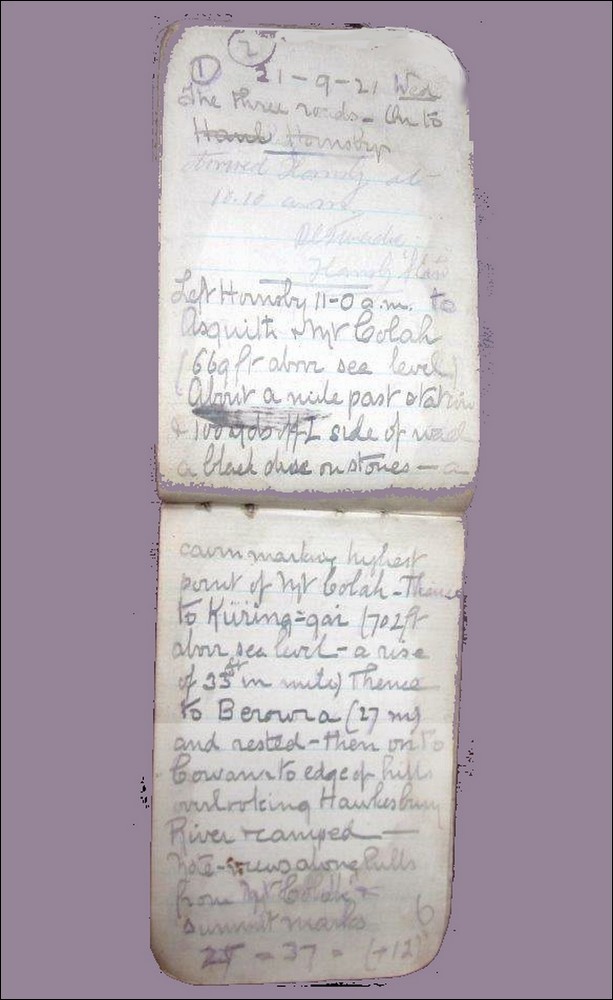 2
1 21-9-21 Wed
The three roads - On to
Hornsby
Hornsby at
10.10 a.m.
Left Hornsby 11-0 a.m. to
Asquith & Mt Colah
(669ft above sea level)
About a mile past station
& 100 yds side of road
a black disc on stones - a
cairn marking highest
point of Mt Colah - Thence
to Küring-gai (702ft
above sea level - a rise
of 33ft in mile) Thence
to Berowra (27 m)
and rested - then on to
Cowan & to edge of hills
overlooking Hawkesbury
River & camped -
Note - views along hills
from Mt Colah &
summit marks
25 - 37 = (+12)
6